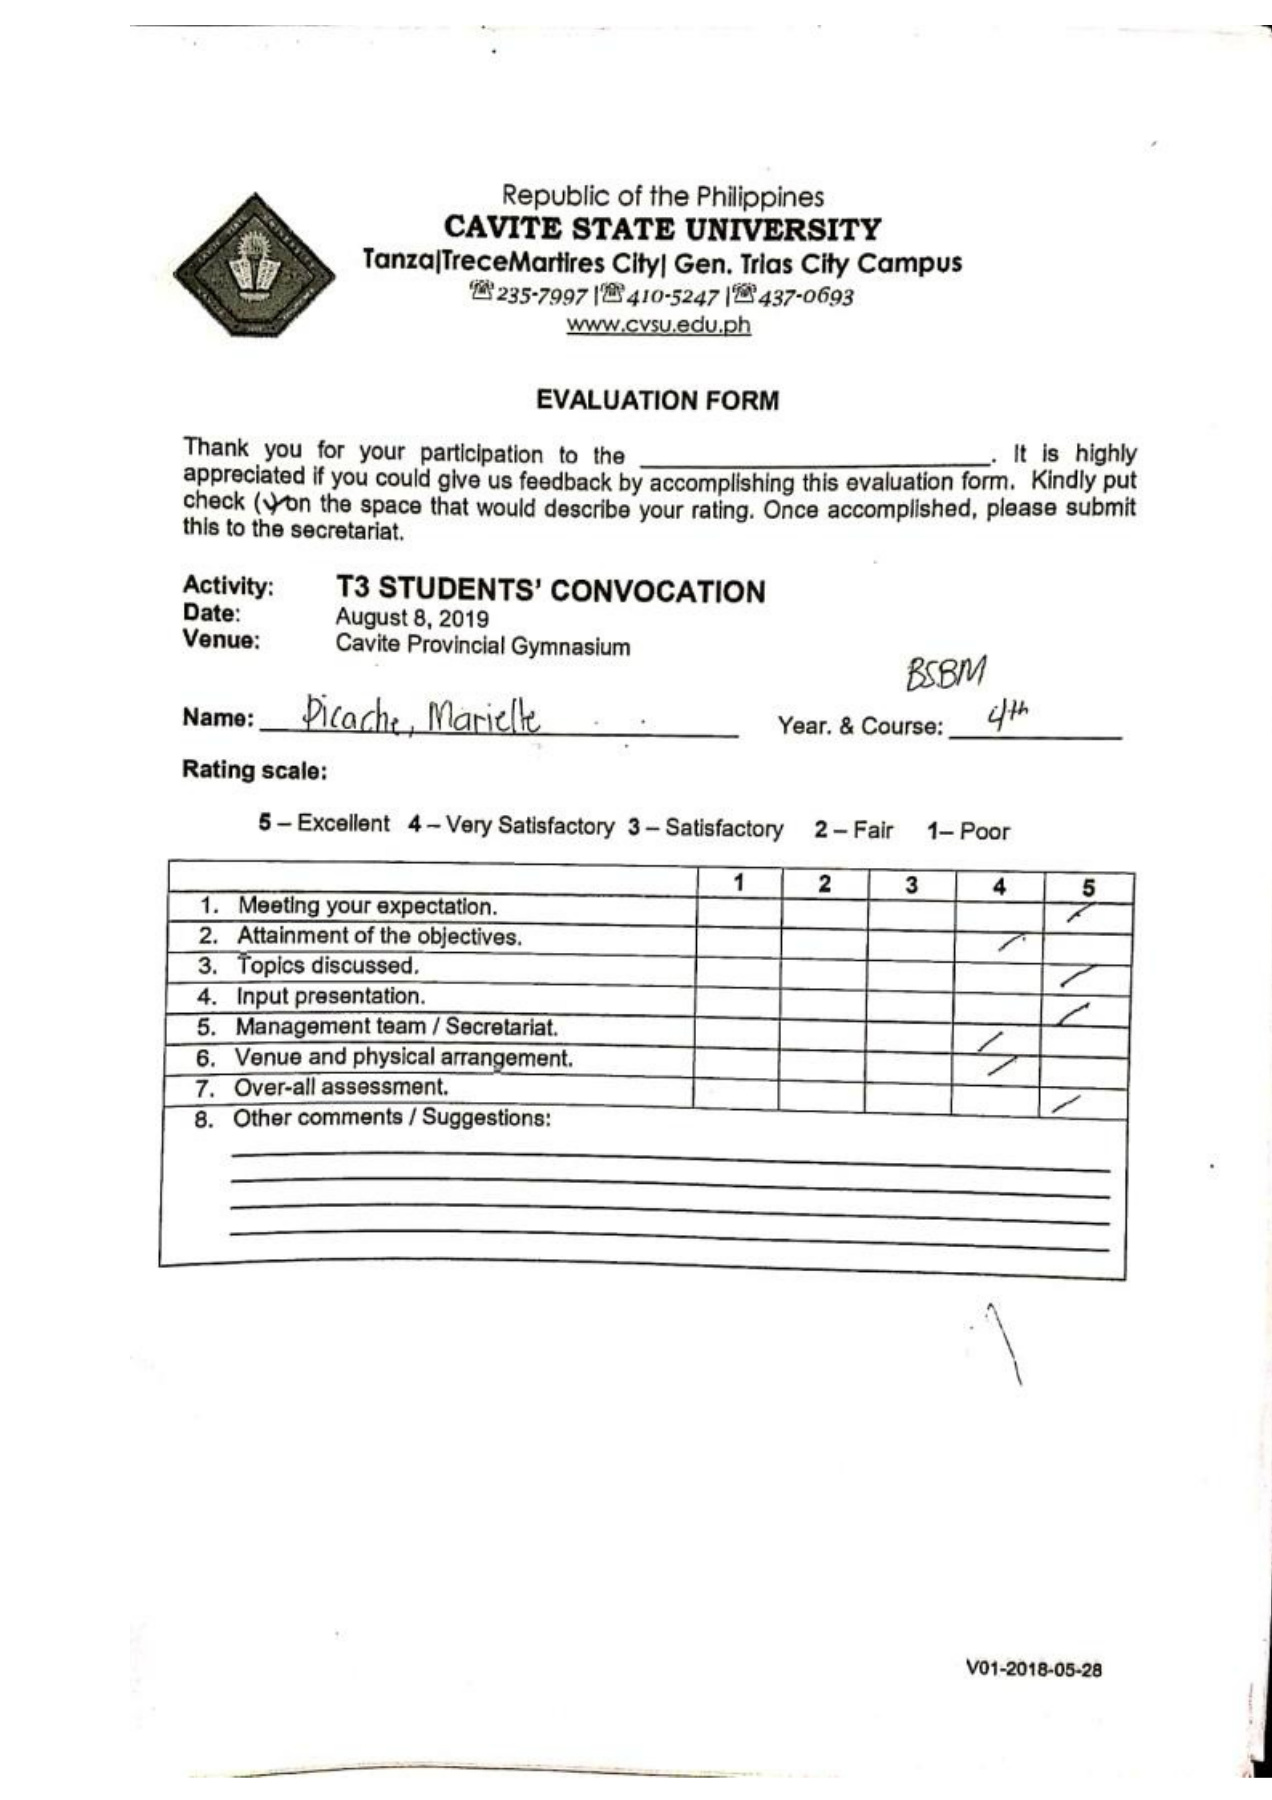 Republic of the Philippines
CAVITE STATE UNIVERSITY
Tanza|TreceMartires City| Gen. Trias City Campus
☏235-7997 |☏410-5247 |☏437-0693
www.cvsu.edu.ph
EVALUATION FORM
Thank you for your participation to the ____________________. It is highly
appreciated if you could give us feedback by accomplishing this evaluation form. Kindly put
check (✓) on the space that would describe your rating. Once accomplished, please submit
this to the secretariat.
Activity: T3 STUDENTS' CONVOCATION
Date: August 8, 2019
Venue: Cavite Provincial Gymnasium
BSBM
Name: Picache, Marielle Year. & Course: 4th
Rating scale:
5 – Excellent 4 – Very Satisfactory 3 – Satisfactory 2 – Fair 1– Poor
1 2 3 4 5
1. Meeting your expectation. /
2. Attainment of the objectives. /
3. Topics discussed. /
4. Input presentation. /
5. Management team / Secretariat. /
6. Venue and physical arrangement. /
7. Over-all assessment. /
8. Other comments / Suggestions:
V01-2018-05-28